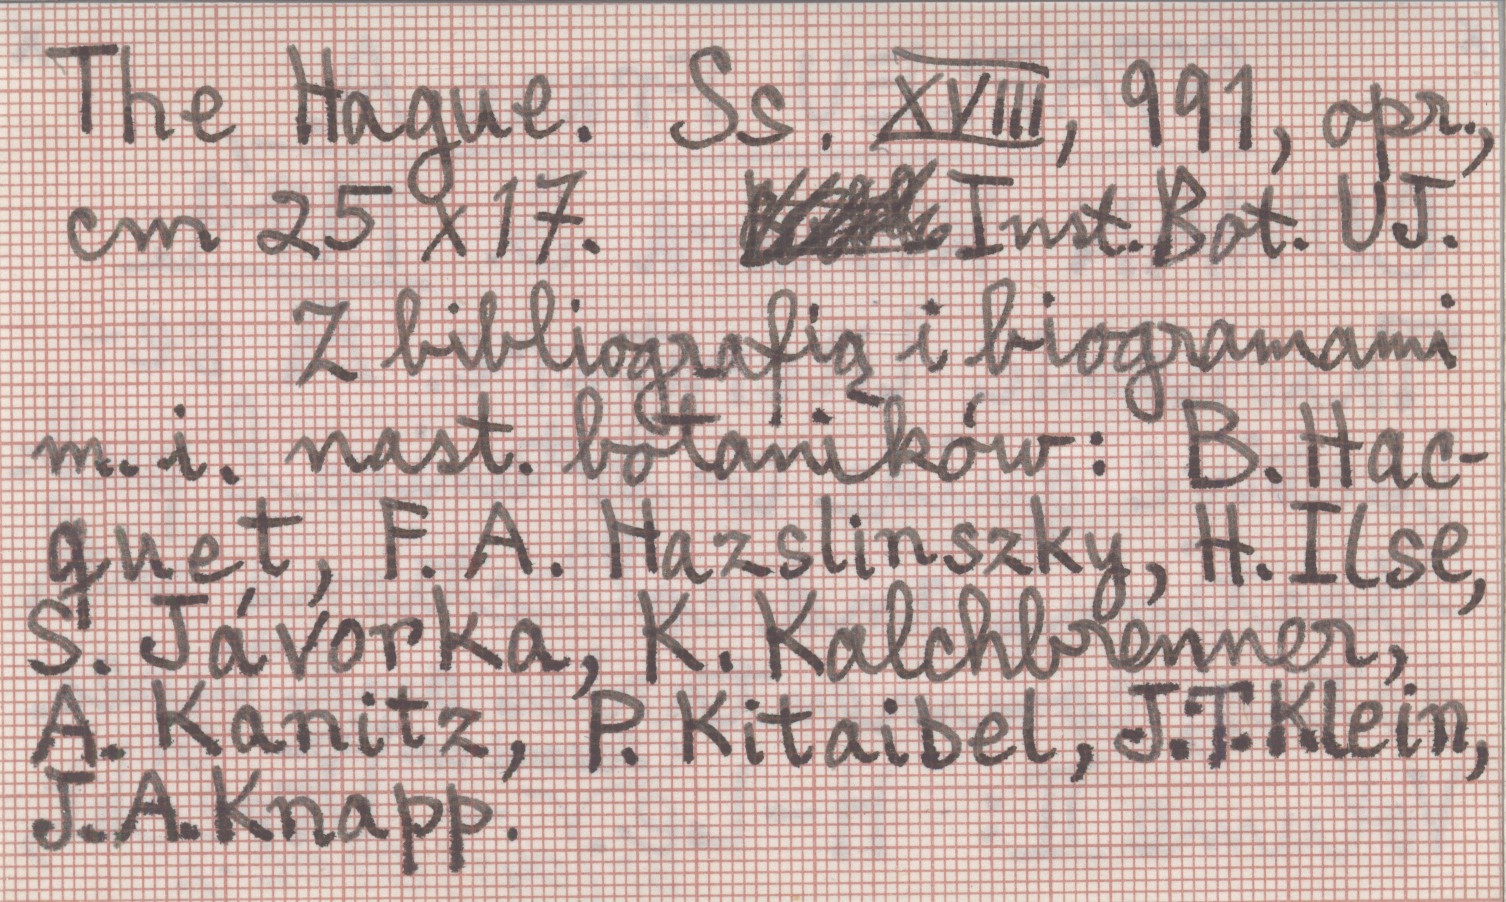 The Hague. Ss. XVIII, 991, opr.,
cm 25 x 17. Inst. Bot. UJ.
Z bibliografią i biogramami
m. i. nast. botaników: B. Hac-
quet, F. A. Hazslinszky, H. Ilse,
S. Jávorka, K. Kalchbrenner,
A. Kanitz, P. Kitaibel, J. T. Klein,
J. A. Knapp.